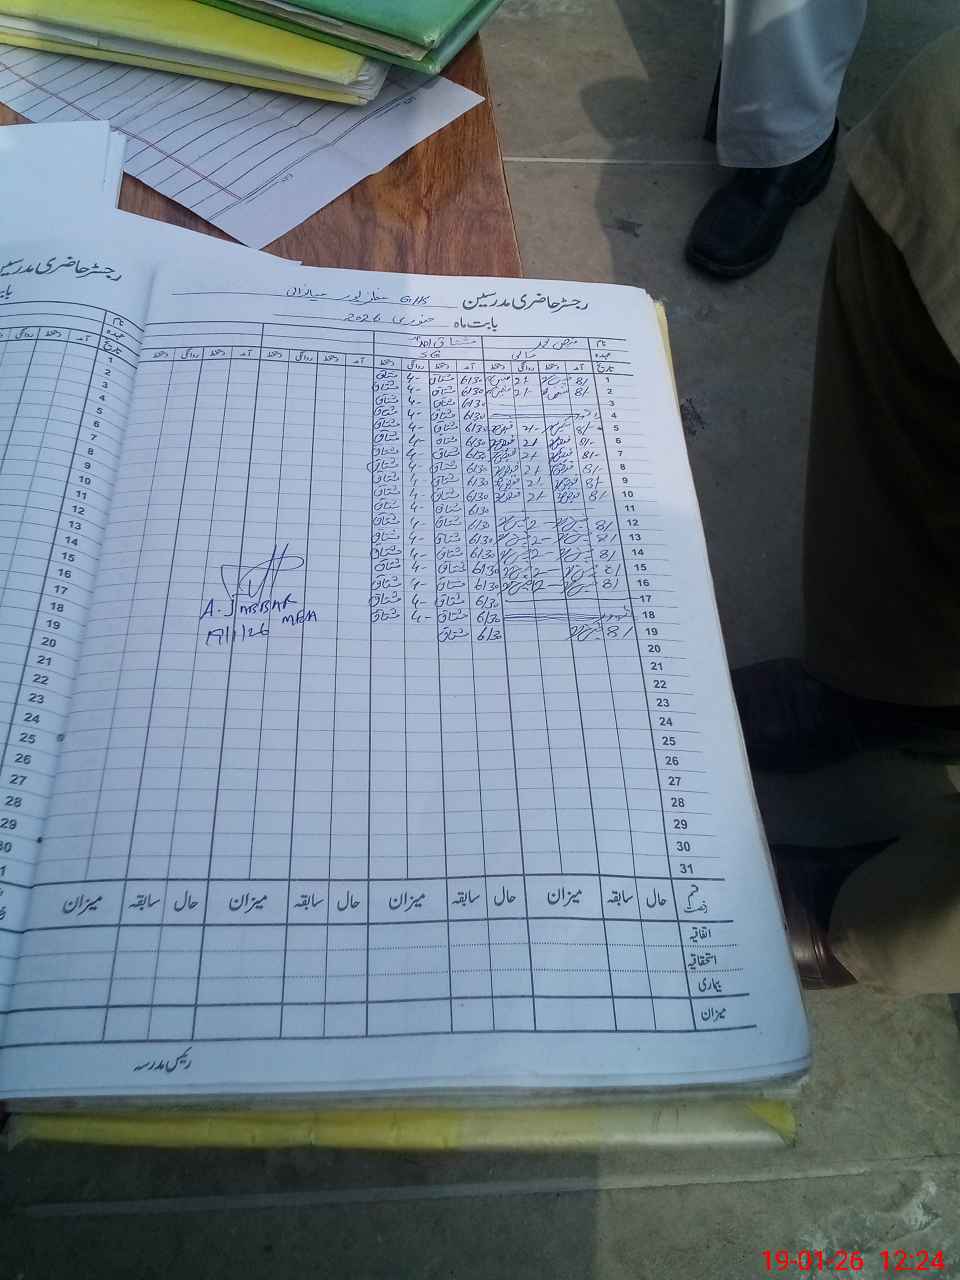 رجسٹر حاضری مدرسین G/HS
بابت ماہ جنوری 2026
نام
عہدہ مالی SG
تاریخ آمد دستخط روانگی دستخط آمد دستخط روانگی دستخط آمد دستخط روانگی دستخط آمد دستخط روانگی دستخط
1 8/ 2/ 6/30 مشتاق 4- مشتاق
2 8/ 2/- 6/30 مشتاق 4- مشتاق
3 6/30 مشتاق 4- مشتاق
4 6/30 مشتاق 4- مشتاق
5 8/- 2/- 6/30 مشتاق 4- مشتاق
6 8/- 2/ 6/30 مشتاق 4- مشتاق
7 8/- 2/ 6/30 مشتاق 4- مشتاق
8 8/- 2/ 6/30 مشتاق 4- مشتاق
9 8/ 2/ 6/30 مشتاق 4- مشتاق
10 8/ 2/ 6/30 مشتاق 4- مشتاق
11 6/30 مشتاق 4- مشتاق
12 8/ 2- 6/30 مشتاق 4- مشتاق
13 8/ 2- 6/30 مشتاق 4- مشتاق
14 8/ 2- 6/30 مشتاق 4- مشتاق
15 8/ 2- 6/30 مشتاق 4- مشتاق
16 8/ 2- 6/30 مشتاق 4- مشتاق
17 6/30 مشتاق 4- مشتاق
18 6/30 مشتاق 4- مشتاق
19 8/ 6/30 مشتاق
20
21
22
23
24
25
26
27
28
29
30
31
A. JABBAR
MEA
19/1/26
قسم رخصت حال سابقہ میزان حال سابقہ میزان حال سابقہ میزان حال سابقہ میزان
اتفاقیہ
استحقاقیہ
بیماری
میزان
رئیس مدرسہ
رجسٹر حاضری مدرسین
نام
عہدہ
تاریخ آمد دستخط روانگی دستخط
1
2
3
4
5
6
7
8
9
10
11
12
13
14
15
16
17
18
19
20
21
22
23
24
25
26
27
28
29
30
19-01-26 12:24